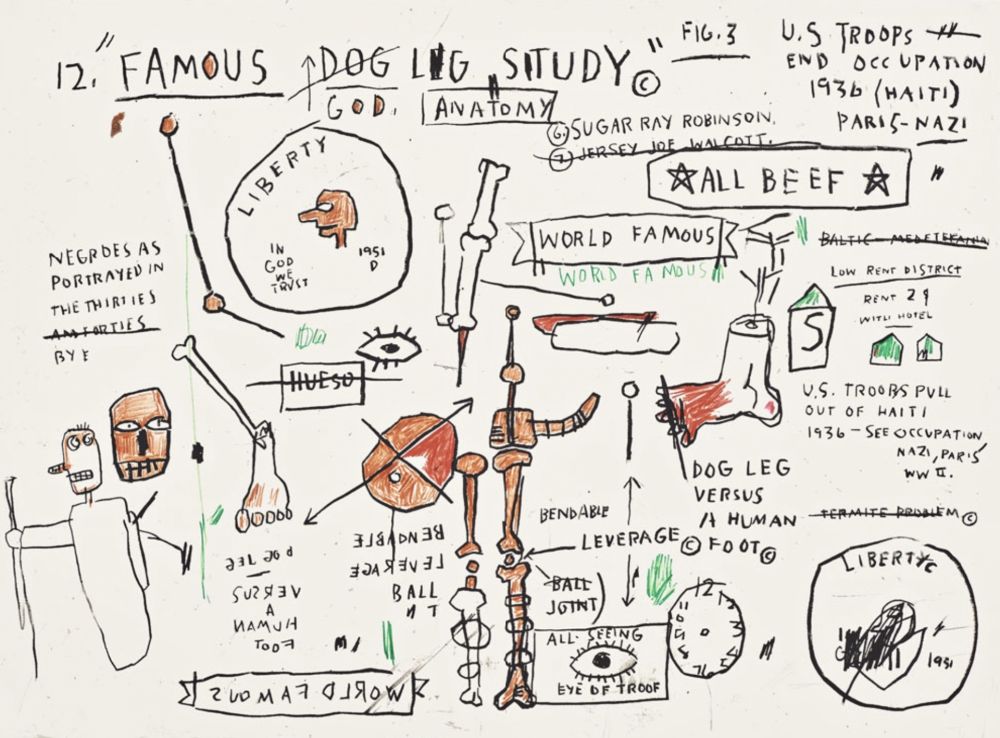 12. "FAMOUS DOG LEG STUDY" ©
GOD.
ANATOMY
FIG. 3
U.S TROOPS
END OCCUPATION
1936 (HAITI)
PARIS-NAZI
6. SUGAR RAY ROBINSON.
7. JERSEY JOE WALCOTT.
☆ALL BEEF☆
LIBERTY
IN
GOD
WE
TRVST
1951
D
WORLD FAMOUS
WORLD FAMOUS
NEGROES AS
PORTRAYED IN
THE THIRTIES
AM FORTIES
BY E
LOW RENT DISTRICT
RENT 2
WITH HOTEL
S
HUESO
U.S. TROOPS PULL
OUT OF HAITI
1936 - SEE OCCUPATION
NAZI, PARIS
WW II.
DOG LEG
VERSUS
A HUMAN
FOOT©
TERMITE PROBLEM ©
BENDABLE
LEVERAGE ©
BALL
JOINT
BENDABLE
LEVERAGE
BALL
DOG LEG
VERSUS
A
HUMAN
FOOT
12
ALL-SEEING
EYE OF TROOF
LIBERTY
1951
WORLD FAMOUS